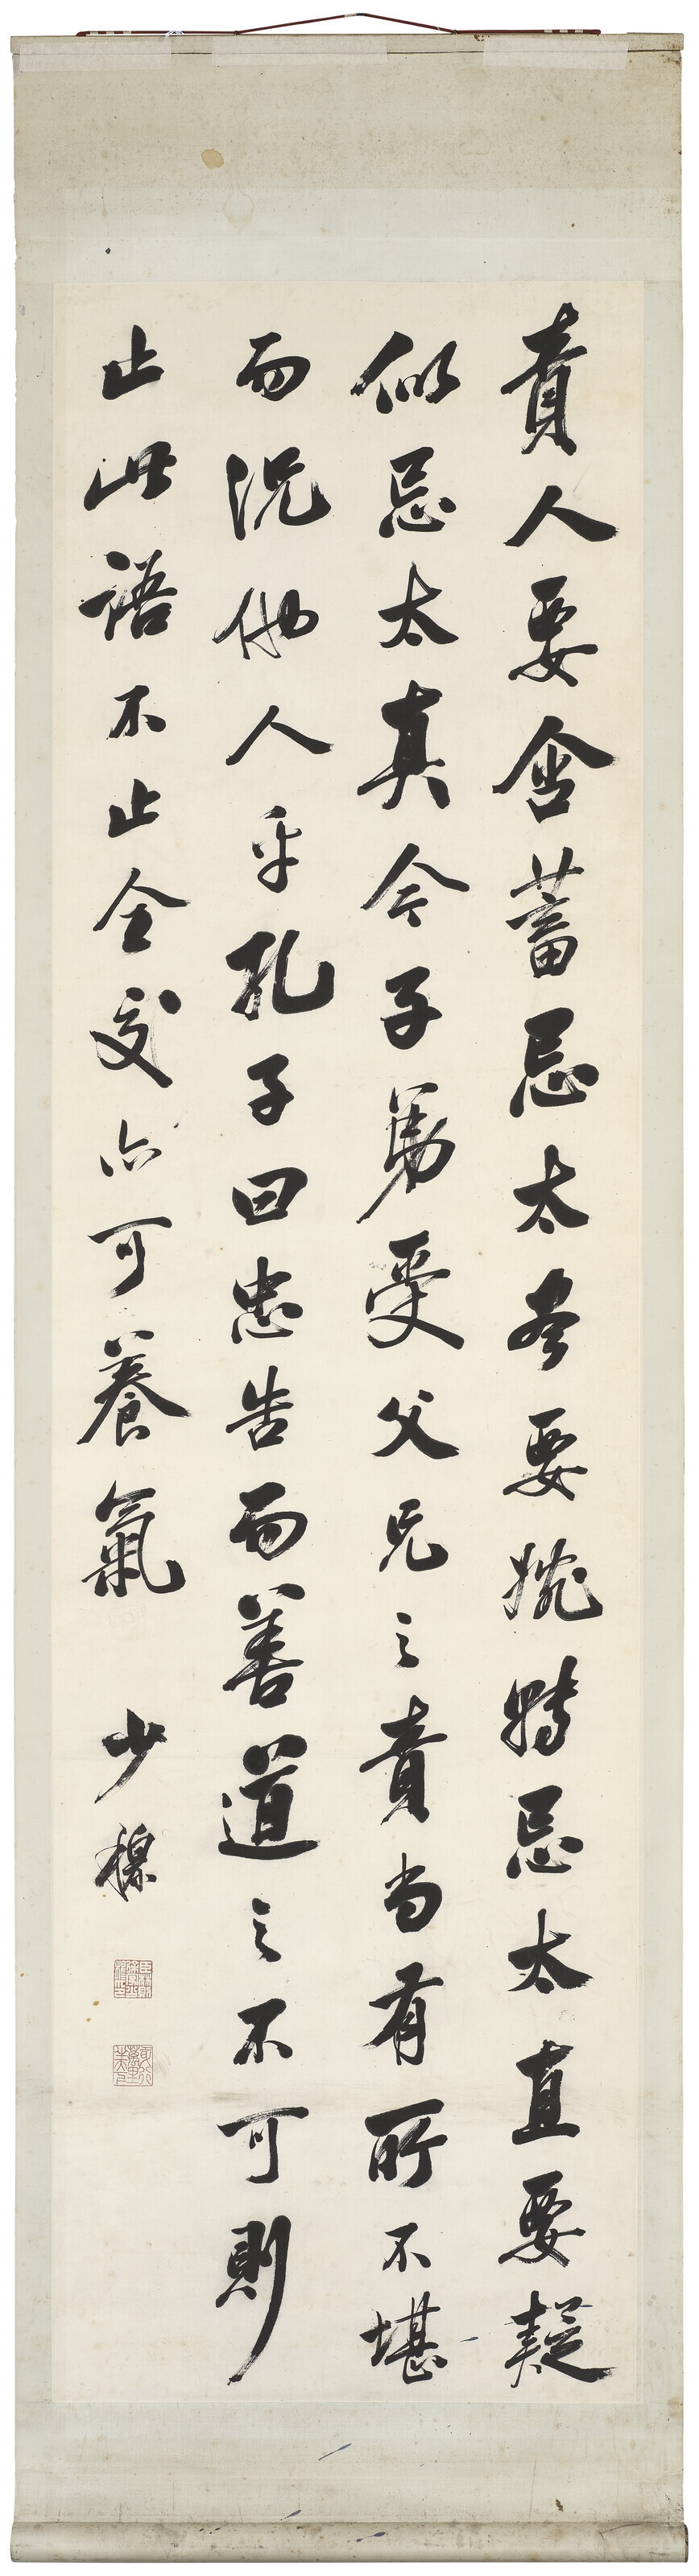 責人要含蓄忌太盡要婉轉忌太直要疑
似忌太真今子弟受父兄之責尚有所不堪
而況他人乎孔子曰忠告而善道之不可則
止此語不止全交亦可養氣
少穆